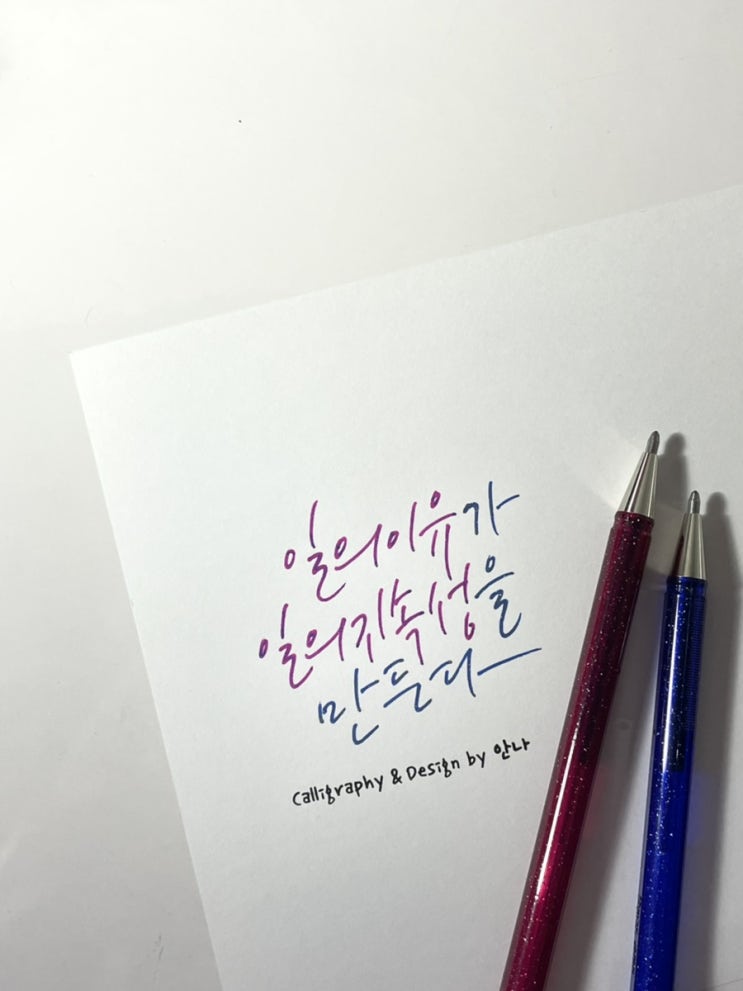 일의 이유가
일의 지속성을
만든다
Calligraphy & Design by 안나